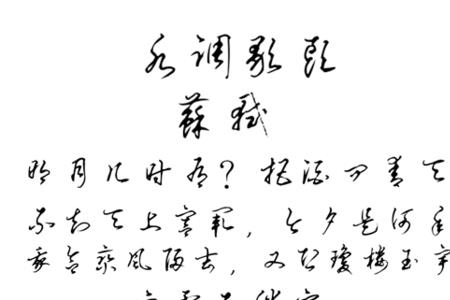 水调歌头
蘇軾
明月几时有？把酒问青天
不知天上宫阙，今夕是何年
我欲乘风归去，又恐琼楼玉宇